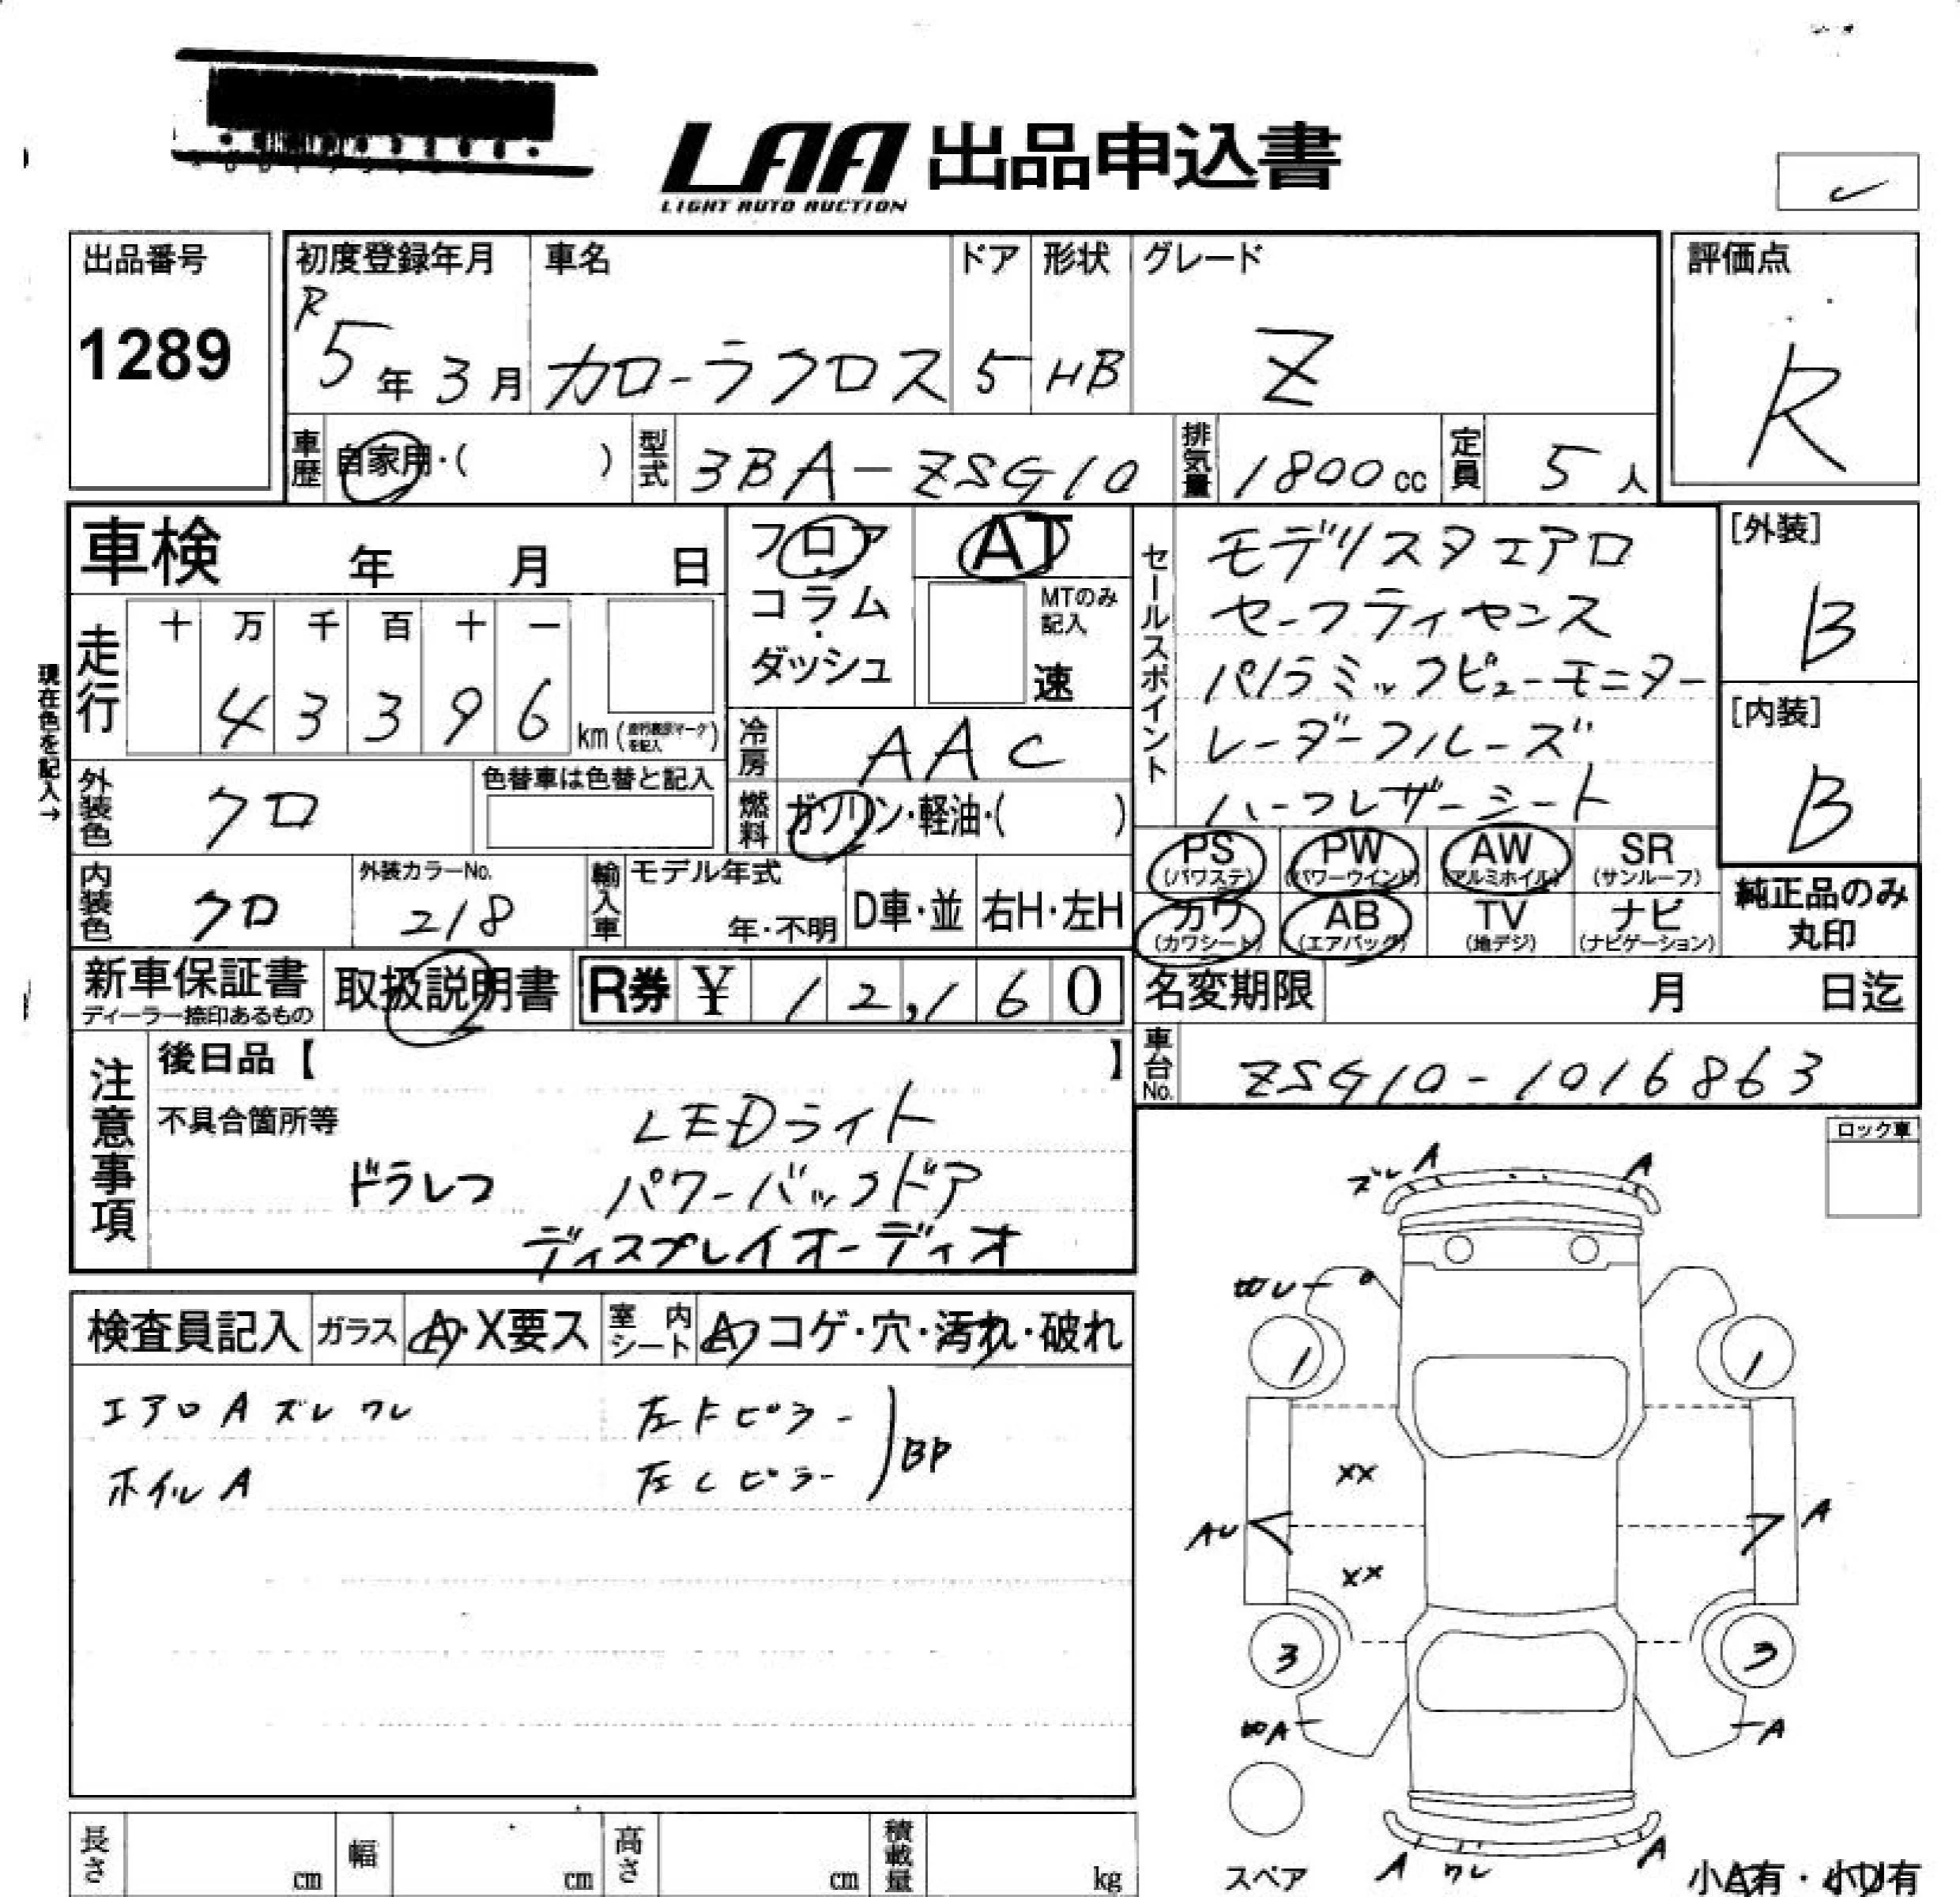 LAA 出品申込書
LIGHT AUTO AUCTION
出品番号
1289
初度登録年月
R
5年3月
車名
カローラクロス
ドア
5
形状
HB
グレード
Z
評価点
R
車歴
自家用・( )
型式
3BA-ZSG10
排気量
1800cc
定員
5人
車検 年 月 日
フロア
・
コラム
・
ダッシュ
AT
MTのみ
記入
速
セールスポイント
モデリスタエアロ
セーフティセンス
パノラミックビューモニター
レーダークルーズ
ハーフレザーシート
[外装]
B
[内装]
B
現在色を記入→
走行
十 万 千 百 十 一
4 3 3 9 6
km(
を記入
)
冷房
AAC
外装色
クロ
色替車は色替と記入
燃料
ガソリン・軽油・( )
内装色
クロ
外装カラーNo.
218
輸入車
モデル年式
年・不明
D車・並
右H・左H
PS
(パワステ)
PW
(パワーウインド)
AW
(アルミホイル)
SR
(サンルーフ)
カワ
(カワシート)
AB
(エアバッグ)
TV
(地デジ)
ナビ
(ナビゲーション)
純正品のみ
丸印
新車保証書
ディーラー捺印あるもの
取扱説明書
R券 ¥ 12,160
名変期限 月 日迄
車台No.
ZSG10-1016863
注意事項
後日品【 】
不具合箇所等
LEDライト
ドラレコ パワーバックドア
ディスプレイオーディオ
ロック車
検査員記入
ガラス
A・X要ス
室内
シート
A・コゲ・穴・汚れ・破れ
エアロ A ズレ ワレ
ホイル A
左Fピラー
左Cピラー
BP
ズレ A A
1 1
XX
AU A
XX
3 3
A
A ワレ A
スペア
小A有・小U有
長さ cm
幅 cm
高さ cm
積載量 kg